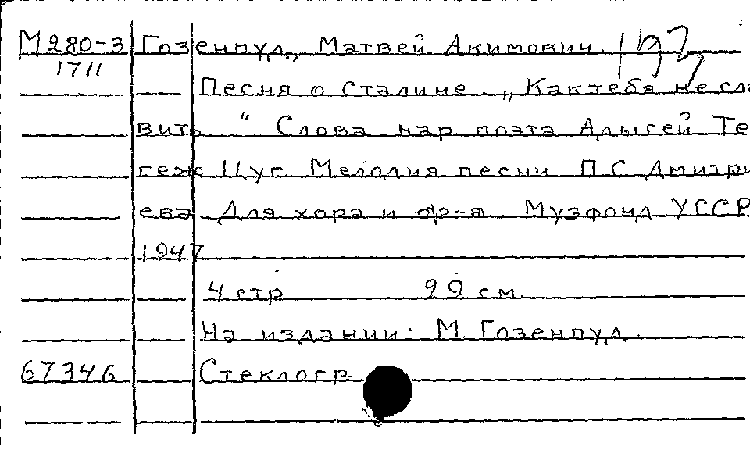 М280-3 Гозенпуд, Матвей Акимович
1711
Песня о Сталине. „Как тебя не сла
вить" Слова нар поэта Алысей Те
геж Цуг Мелодия песни П С Дмитри
ева Для хора и ф-п Музфонд УССР
1947
4 стр 29 см.
На издании: М Гозенпуд.
67346 Стеклогр